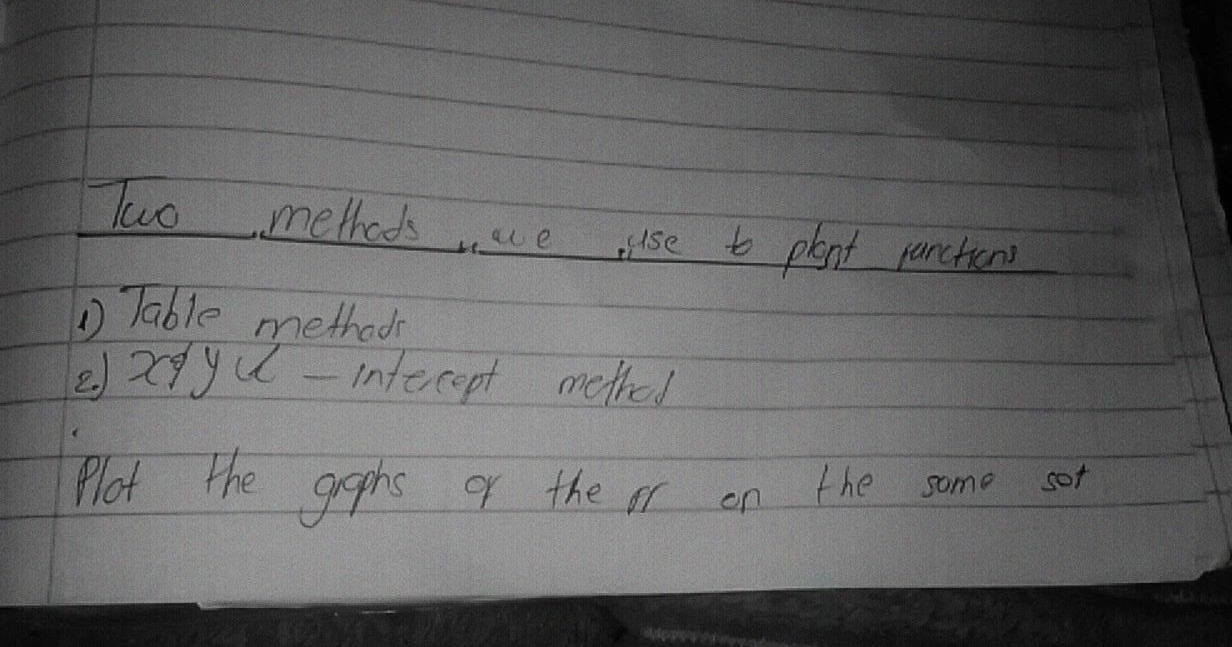 Two methods we use to plont functions
1) Table methods
2.) x & y - intercept method
Plot the graphs of the ff on the same set